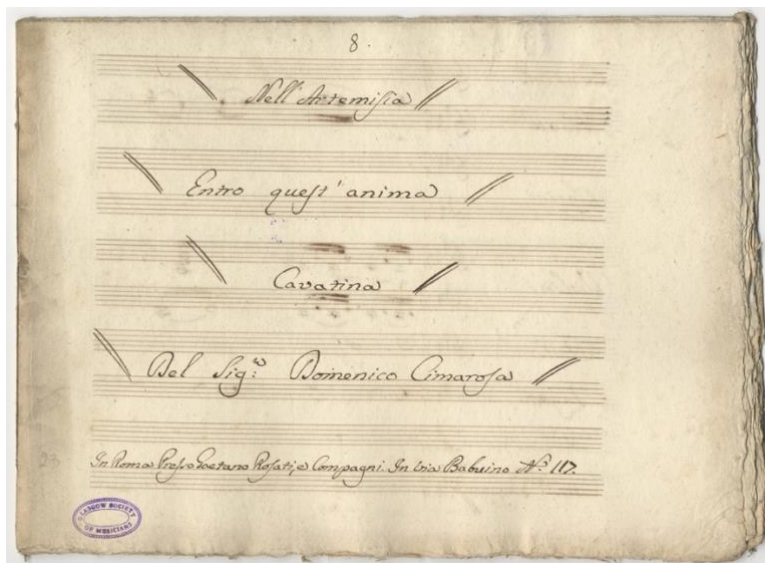 8.
Nell' Artemisia
Entro quest' anima
Cavatina
Del Sig.re Domenico Cimarosa
23
In Roma Presso Gaetano Rosati, e Compagni. In Via Babuino N.o 117.
GLASGOW SOCIETY
OF MUSICIANS